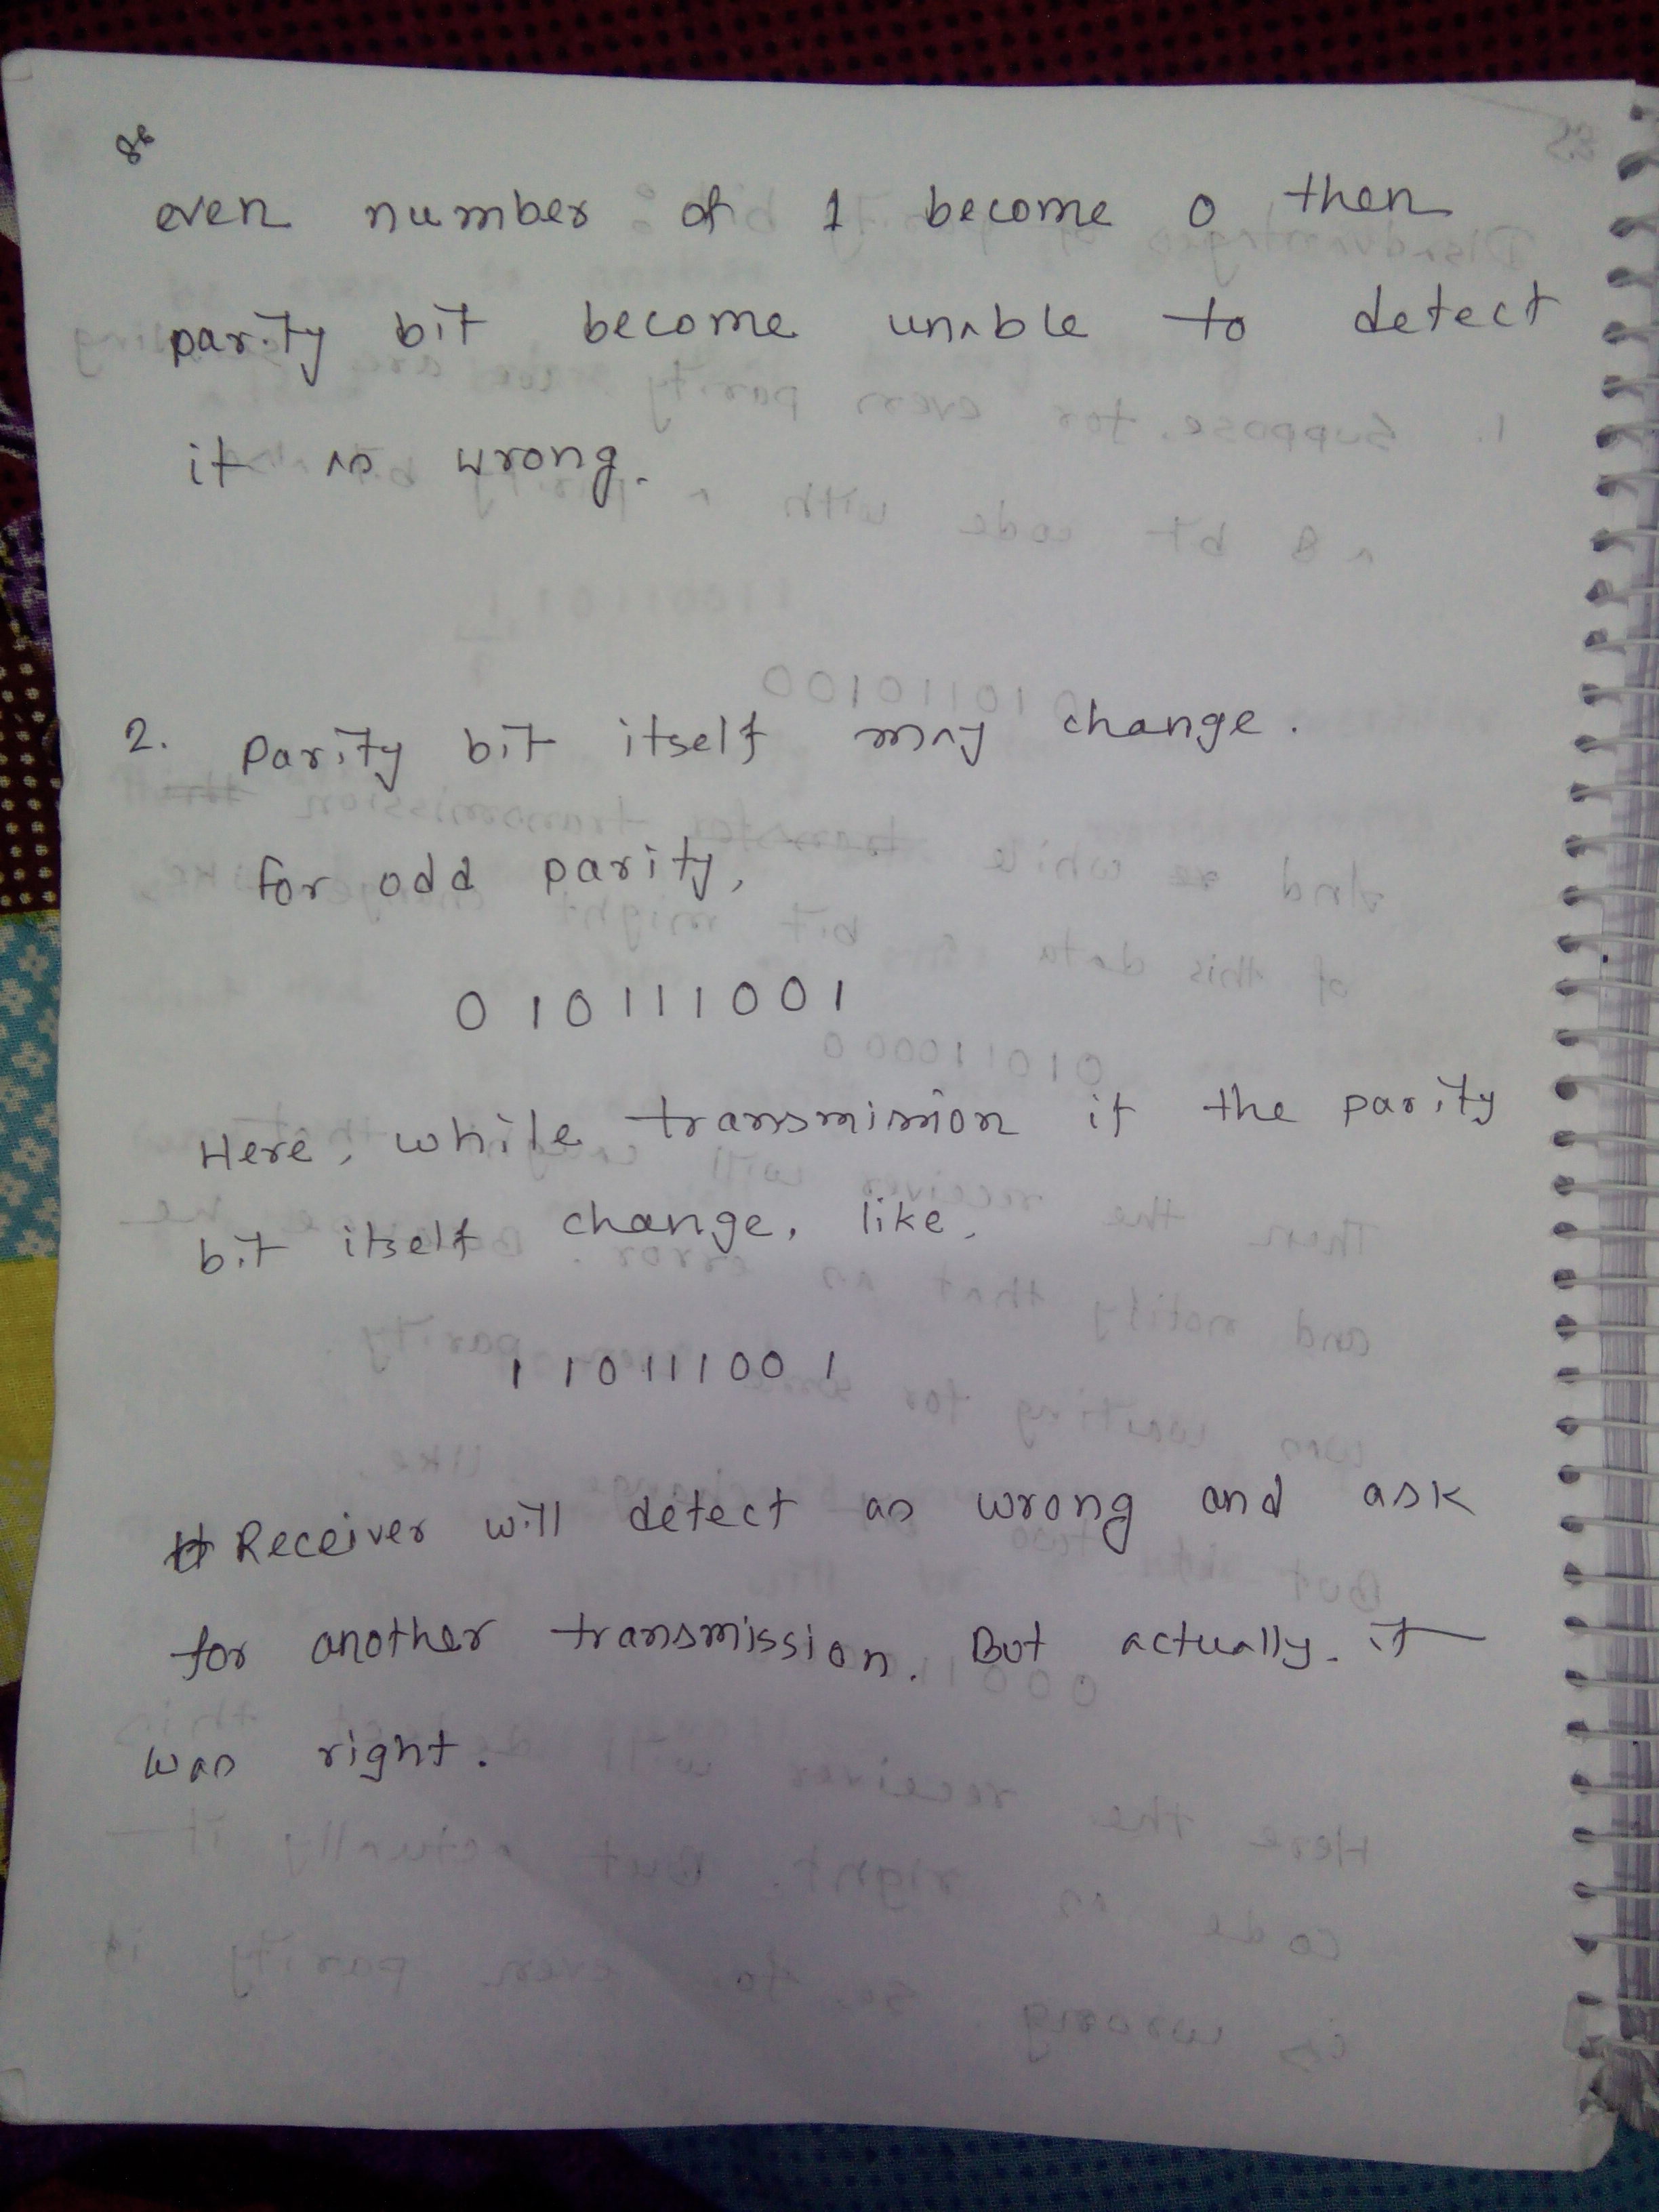 86
even number of 1 become 0 then
parity bit become unable to detect
it as wrong.
2. Parity bit itself may change.
for odd parity,
010111001
Here, while transmission if the parity
bit itself change, like,
110111001
Receiver will detect as wrong and ask
for another transmission. But actually, it
was right.